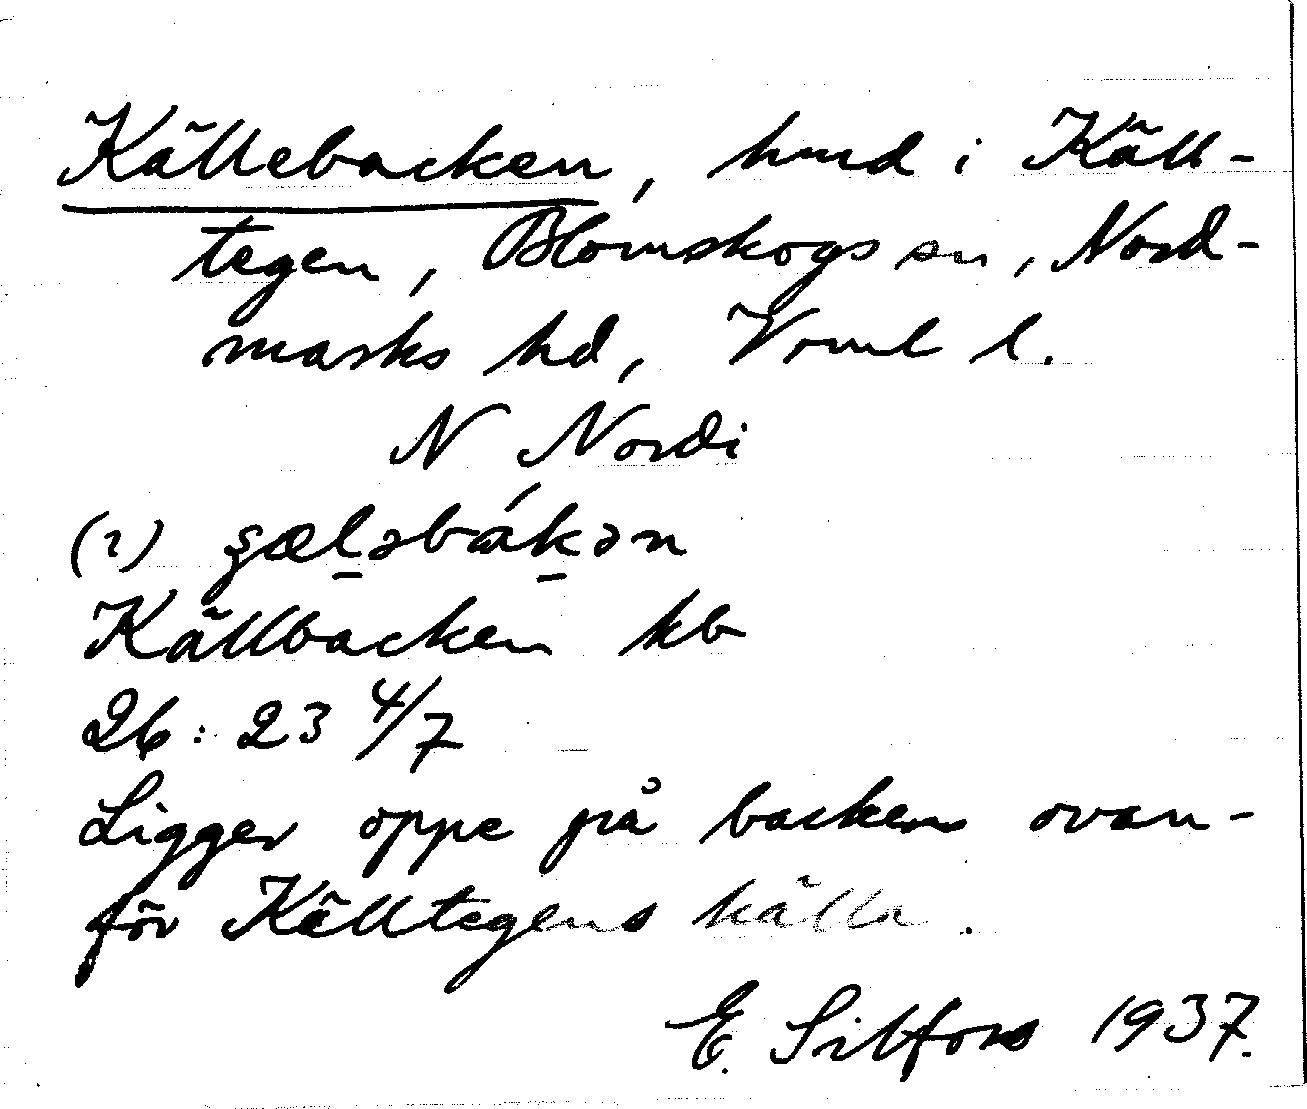 Källebacken, hmd i Käll-
tegen, Blomskogs sn, Nord-
marks hd, Vrml l.
N Nordi
(2) şæləbákən
Källbacken kb
26: 23 4/7
Ligger oppe på backen ovan-
för Källtegens källa.
E. Silfors 1937.